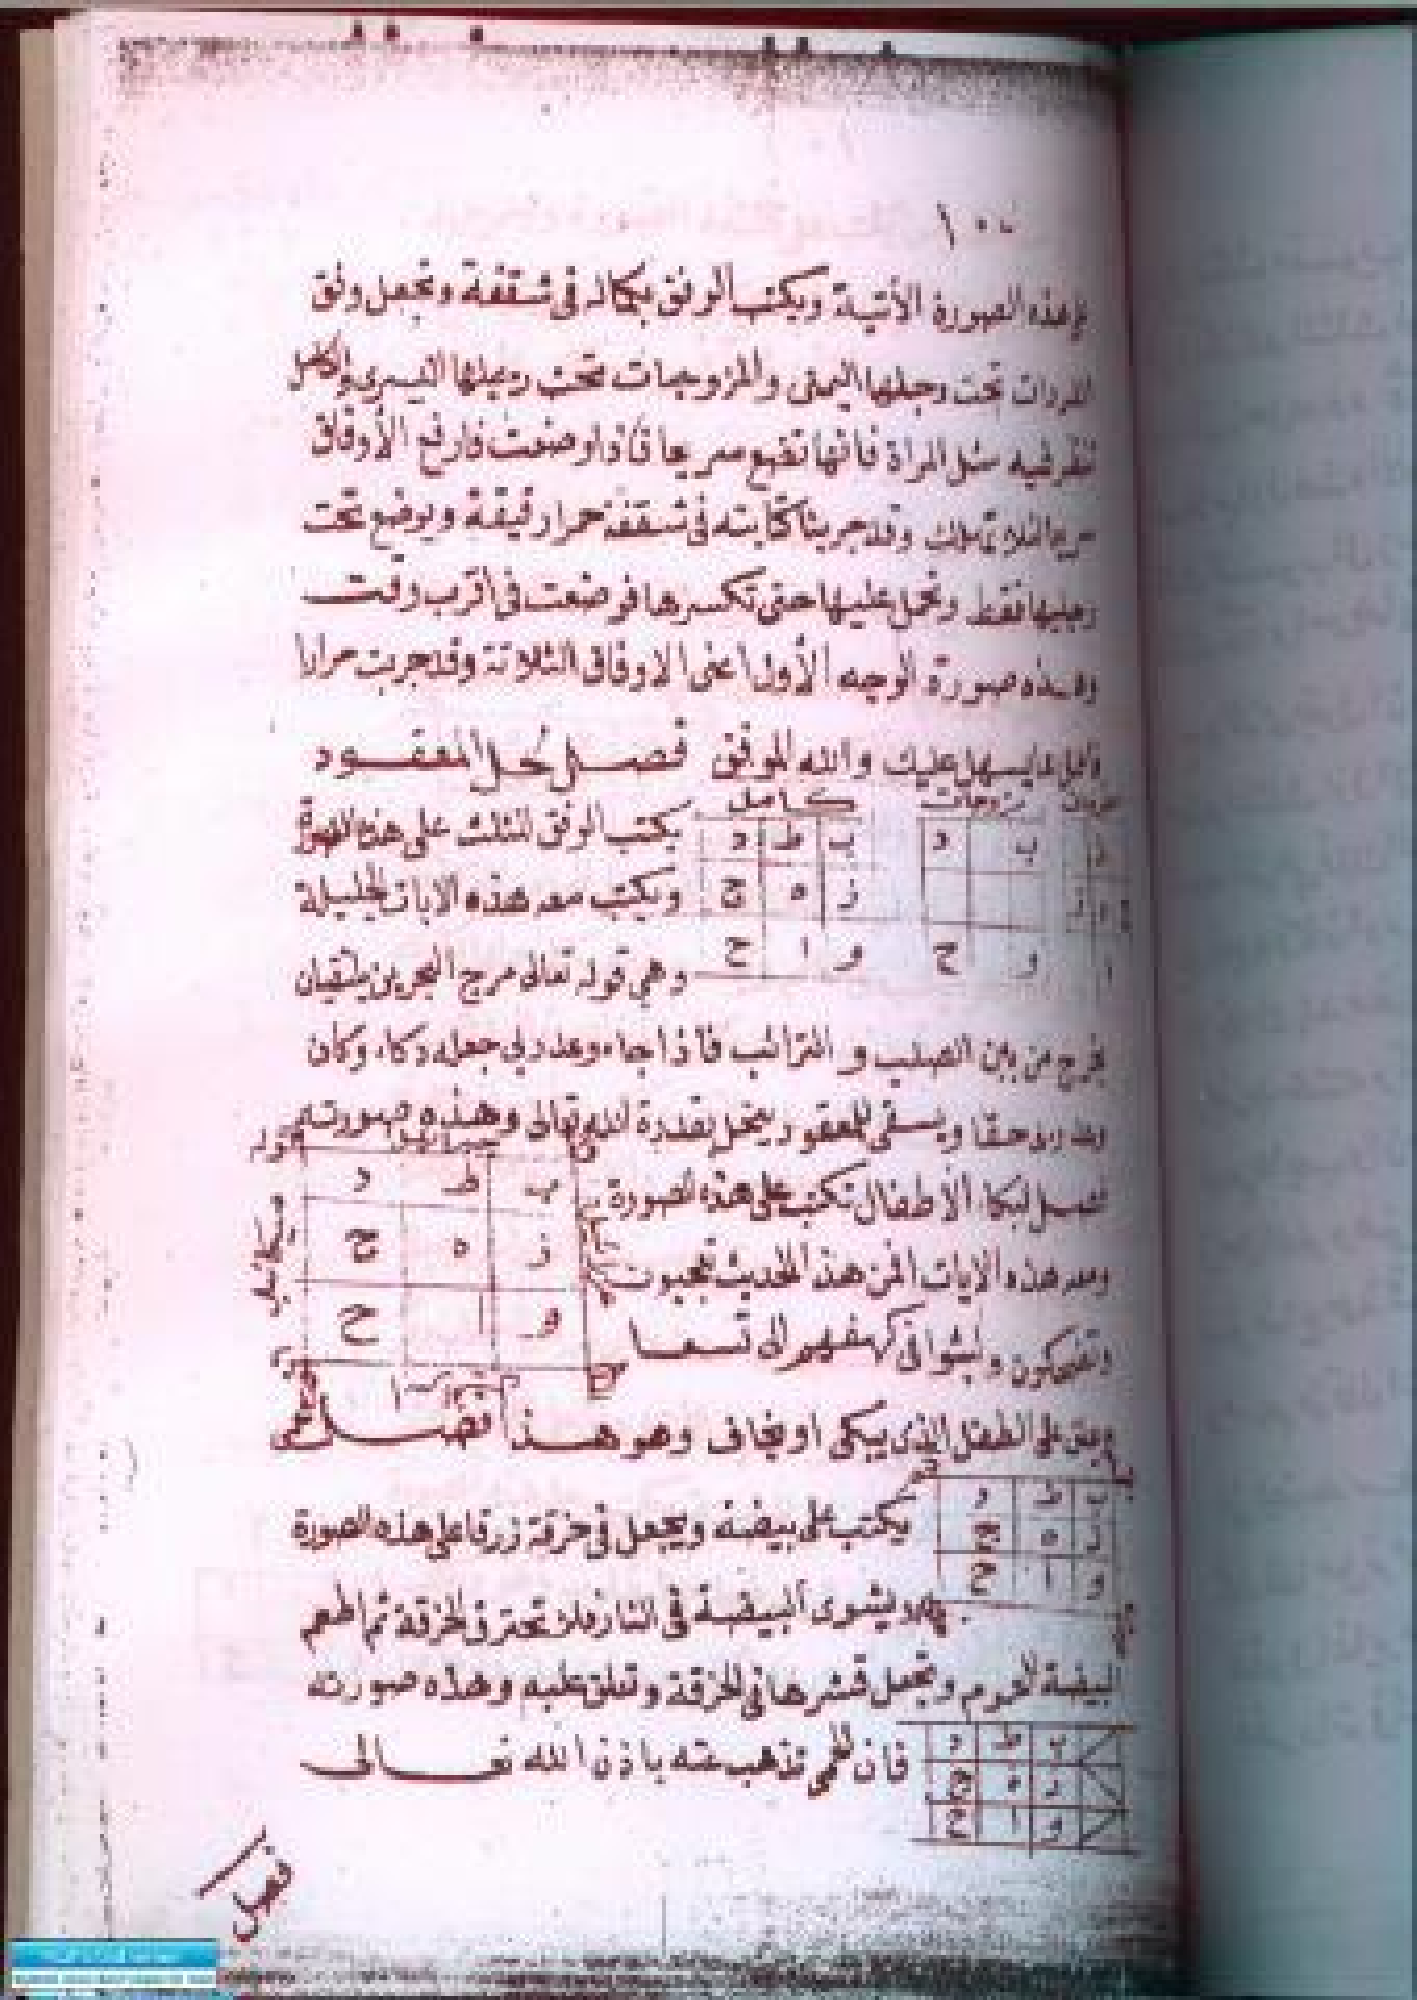 على هذه الصورة الأتية ويكتب الوفق بكماله فى شقفة وتجعل وفق
المفردات تحت رجلها اليمنى والمزوجات تحت رجلها اليسرى والكامل
تنظر فيه مثل المراة فانها تضع سريعا فاذا وضعت فارفع الأوفاق
سريعا لئلا وقد جربنا كتابته فى شقفة حمرا رقيقة ويوضع تحت
رجليها فقط وتحمل عليها حتى تكسرها فوضعت فى اقرب وقت
وهذه صورة الوجه الأول اعنى الاوفاق الثلاثة وقد جربت مرارا
مايسهل عليك والله الموفق فصل لحل المعقود
مزوجات كامل
ب د
و ح
ب ط د
ز ه ج
و ا ح
يكتب الوفق المثلث على هذه الصورة
ويكتب معه هذه الايات الجليلة
وهى قوله تعالى مرج البحرين يلتقيان
يخرج من بين الصلب و الترائب فاذا جاء وعد ربى جعله دكاء وكان
وعد ربى حقا ويسقى للمعقود ينحل بقدرة الله تعالى وهذه صورته
جبرائيل
ميكائيل
ب ط د
ز ه ج
و ا ح
فصل لبكاء الأطفال تكتب على هذه الصورة
ومعه هذه الايات افمن هذا الحديث تعجبون
وتضحكون ولبثوا فى كهفهم الى تسعا
ويعلق على الطفل الذى يبكى او يخاف وهو هذا فصل للحمى
ب ط د
ز ه ج
و ا ح
يكتب على بيضة ويجعل فى خرقة زرقا على هذه الصورة
ويشوى البيضة فى النار فلا تحترق الخرقة ثم اطعم
البيضة للمحموم وتجعل قشرها فى الخرقة وتعلق عليه وهذه صورته
ب ط د
ز ه ج
و ا ح
فان الحمى تذهب عنه باذن الله تعالى
فصل